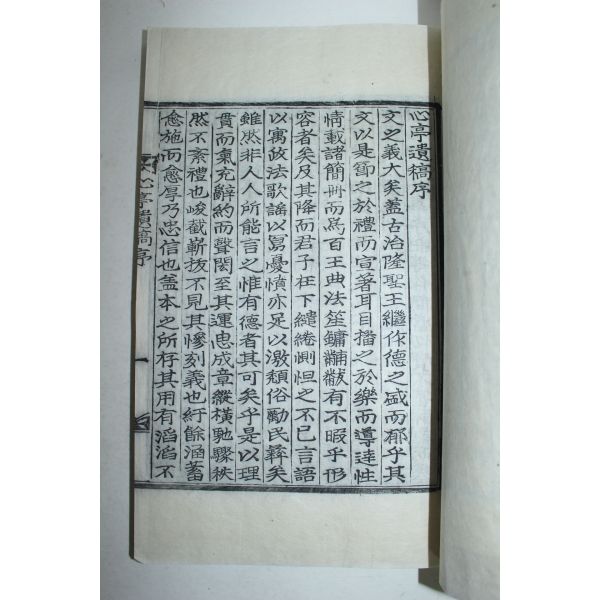 心亭遺稿序
文之義大矣蓋古治隆聖王繼作德之盛而郁乎其
文以是節之於禮而宣著耳目播之於樂而導達性
情載諸簡冊而爲百王典法笙鏞黼黻有不暇乎形
容者矣及其降而君子在下繾綣惻怛之不已言語
以寓政法歌謠以寫憂憤亦足以激頹俗勵民彝矣
雖然非人人所能言之惟有德者其可矣乎是以理
貫而氣充辭約而聲閎至其運思成章縱橫馳驟秩
然不紊禮也峻截嶄拔不見其慘刻義也紆餘涵蓄
愈施而愈厚乃忠信也蓋本之所存其用有滔滔不
心亭遺稿序 一